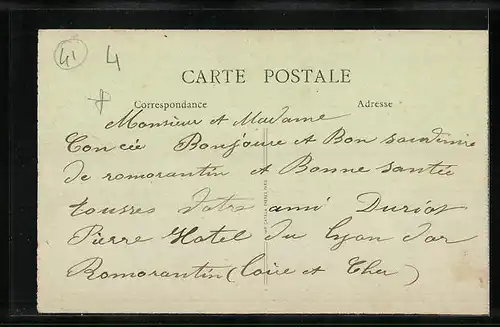 41 4
CARTE POSTALE
Correspondance Adresse
Monsieur et Madame
Concée Bonjoure et Bon
de romorantin et Bonne santée
tousses Votre ami Duriot
Pierre Hotel du Lyon dor
Romorantin (Loire et Cher)